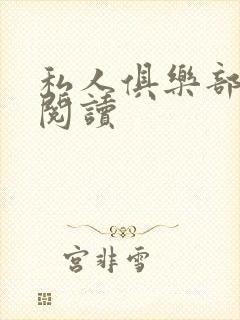 私人俱樂部
閱讀
宮非雪